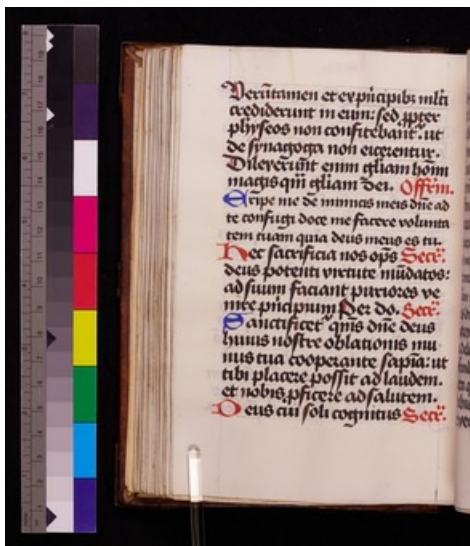 Veru̅tamen et ex pri̅cipib; mlti
crediderunt in eum: sed ꝓpter
physeos non confitebant̅. ut
de synagoga non eicerentur.
Dilexeru̅t enim gl̅iam homi̅
magis qm̅ gl̅iam dei. Offr̅m.
Eripe me de inimicis meis dn̅e ad
te confugi doce me facere volunta
tem tuam quia deus meus es tu.
Hec sacrificia nos op̅s Secr̅.
deus potenti virtute mu̅datos:
ad suum faciant puriores ve
nire pri̅cipium Per do. Secr̅.
Sanctificet qm̅s dn̅e deus
huius nostre oblationis mu
nus tua cooperante sapi̅a: ut
tibi placere possit ad laudem.
et nobis ꝓficere ad salutem.
Deus cui soli cognitus Secr̅.